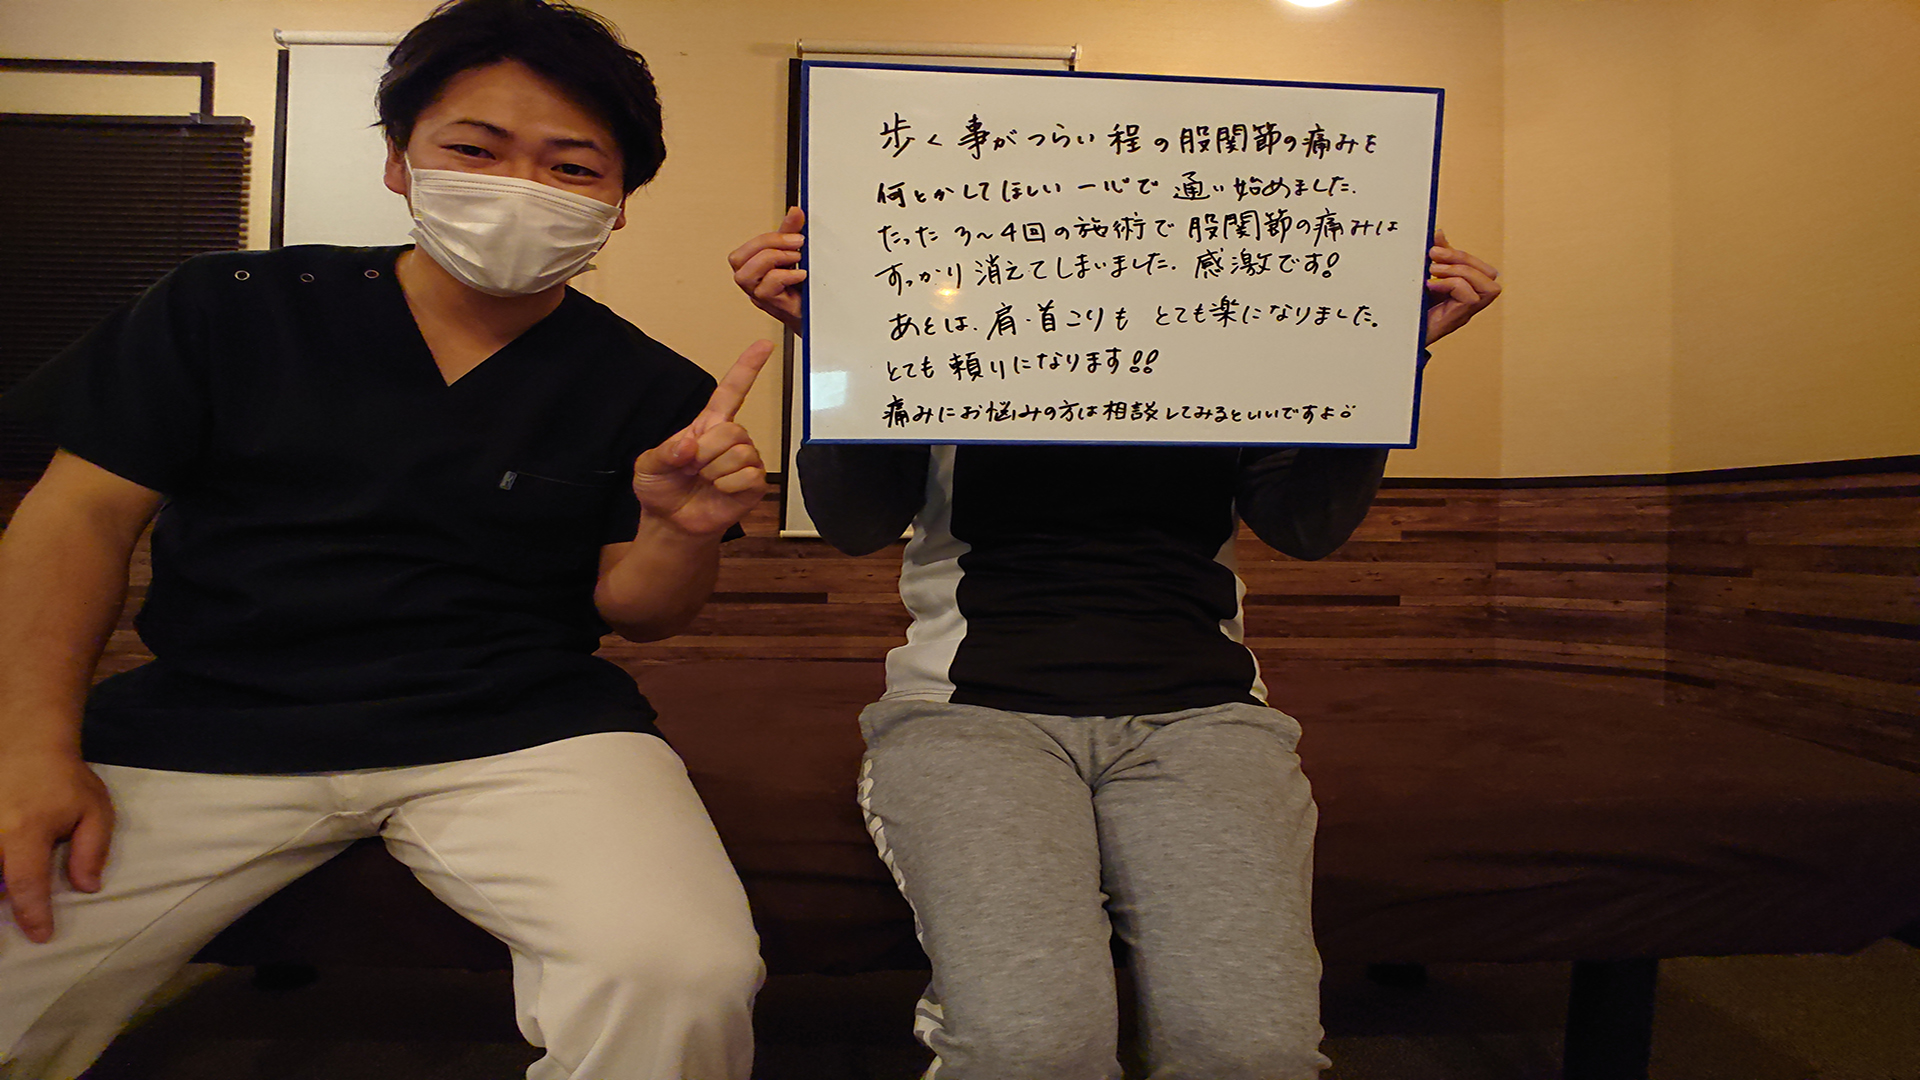 歩く事がつらい程の股関節の痛みを
何とかしてほしい一心で通い始めました.
たった3〜4回の施術で股関節の痛みは
すっかり消えてしまいました. 感激です!
あとは.肩・首こりも とても楽になりました。
とても頼りになります!!
痛みにお悩みの方は相談してみるといいですよ